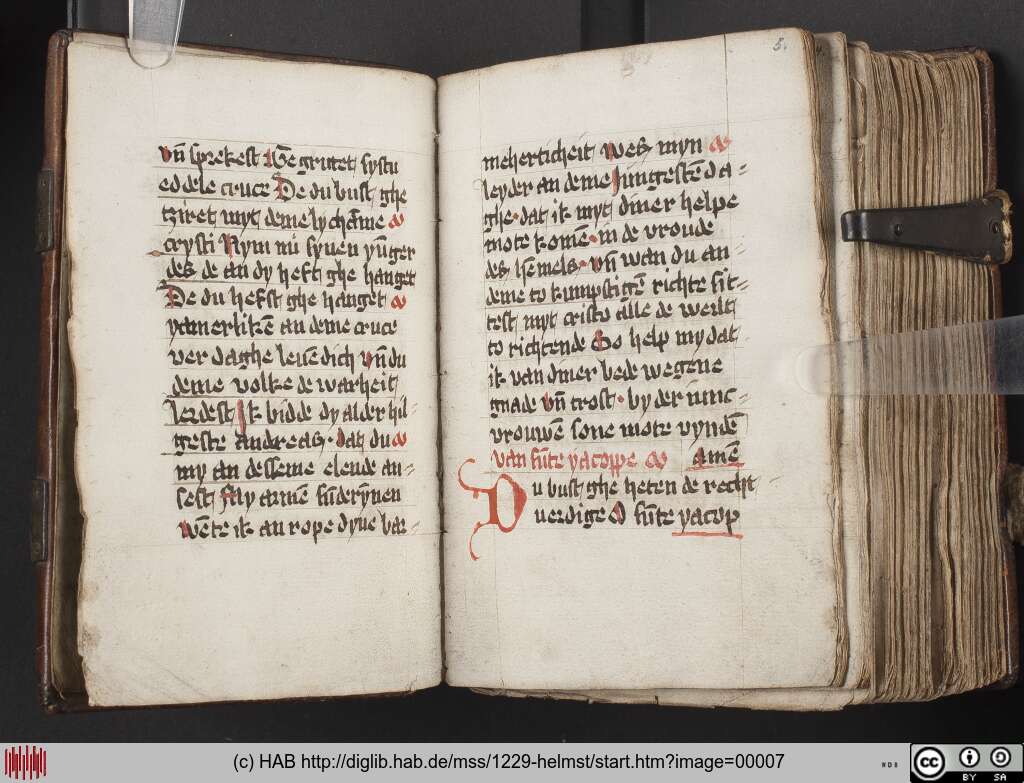 vn̄ sprekest Ge grutet systu
eddele cruce De du bust ghe
tziret myt deme lychāme
cristi Nym nu synen yunger
des de an dy heft ghe hanget
De du hefst ghe hanget
yamerliken an deme cruce
ver daghe leuēdich vn̄ du
deme volke de warheit
lerdest Ik bidde dy alder hil-
geste andreas dat du
my an desseme elende an-
sest my armē sūderynnen
wēte ik an rope dyne bar-
5.
meherticheit wes myn
leyder an deme Jungestē da-
ghe dat ik myt diner helpe
mote komē in de vroude
des hēmels vn̄ wan du an
deme to kumpstigē richte sit-
test myt cristo alle de werlt
to richtende So help my dat
ik van diner bede wegene
gnade vn̄ trost by der iunc-
vrouwē sone mote vyndē
van sūte yacoppe Amē
Du bust ghe heten de recht
uerdige O sūte yacop
(c) HAB http://diglib.hab.de/mss/1229-helmst/start.htm?image=00007
WDB
cc BY SA